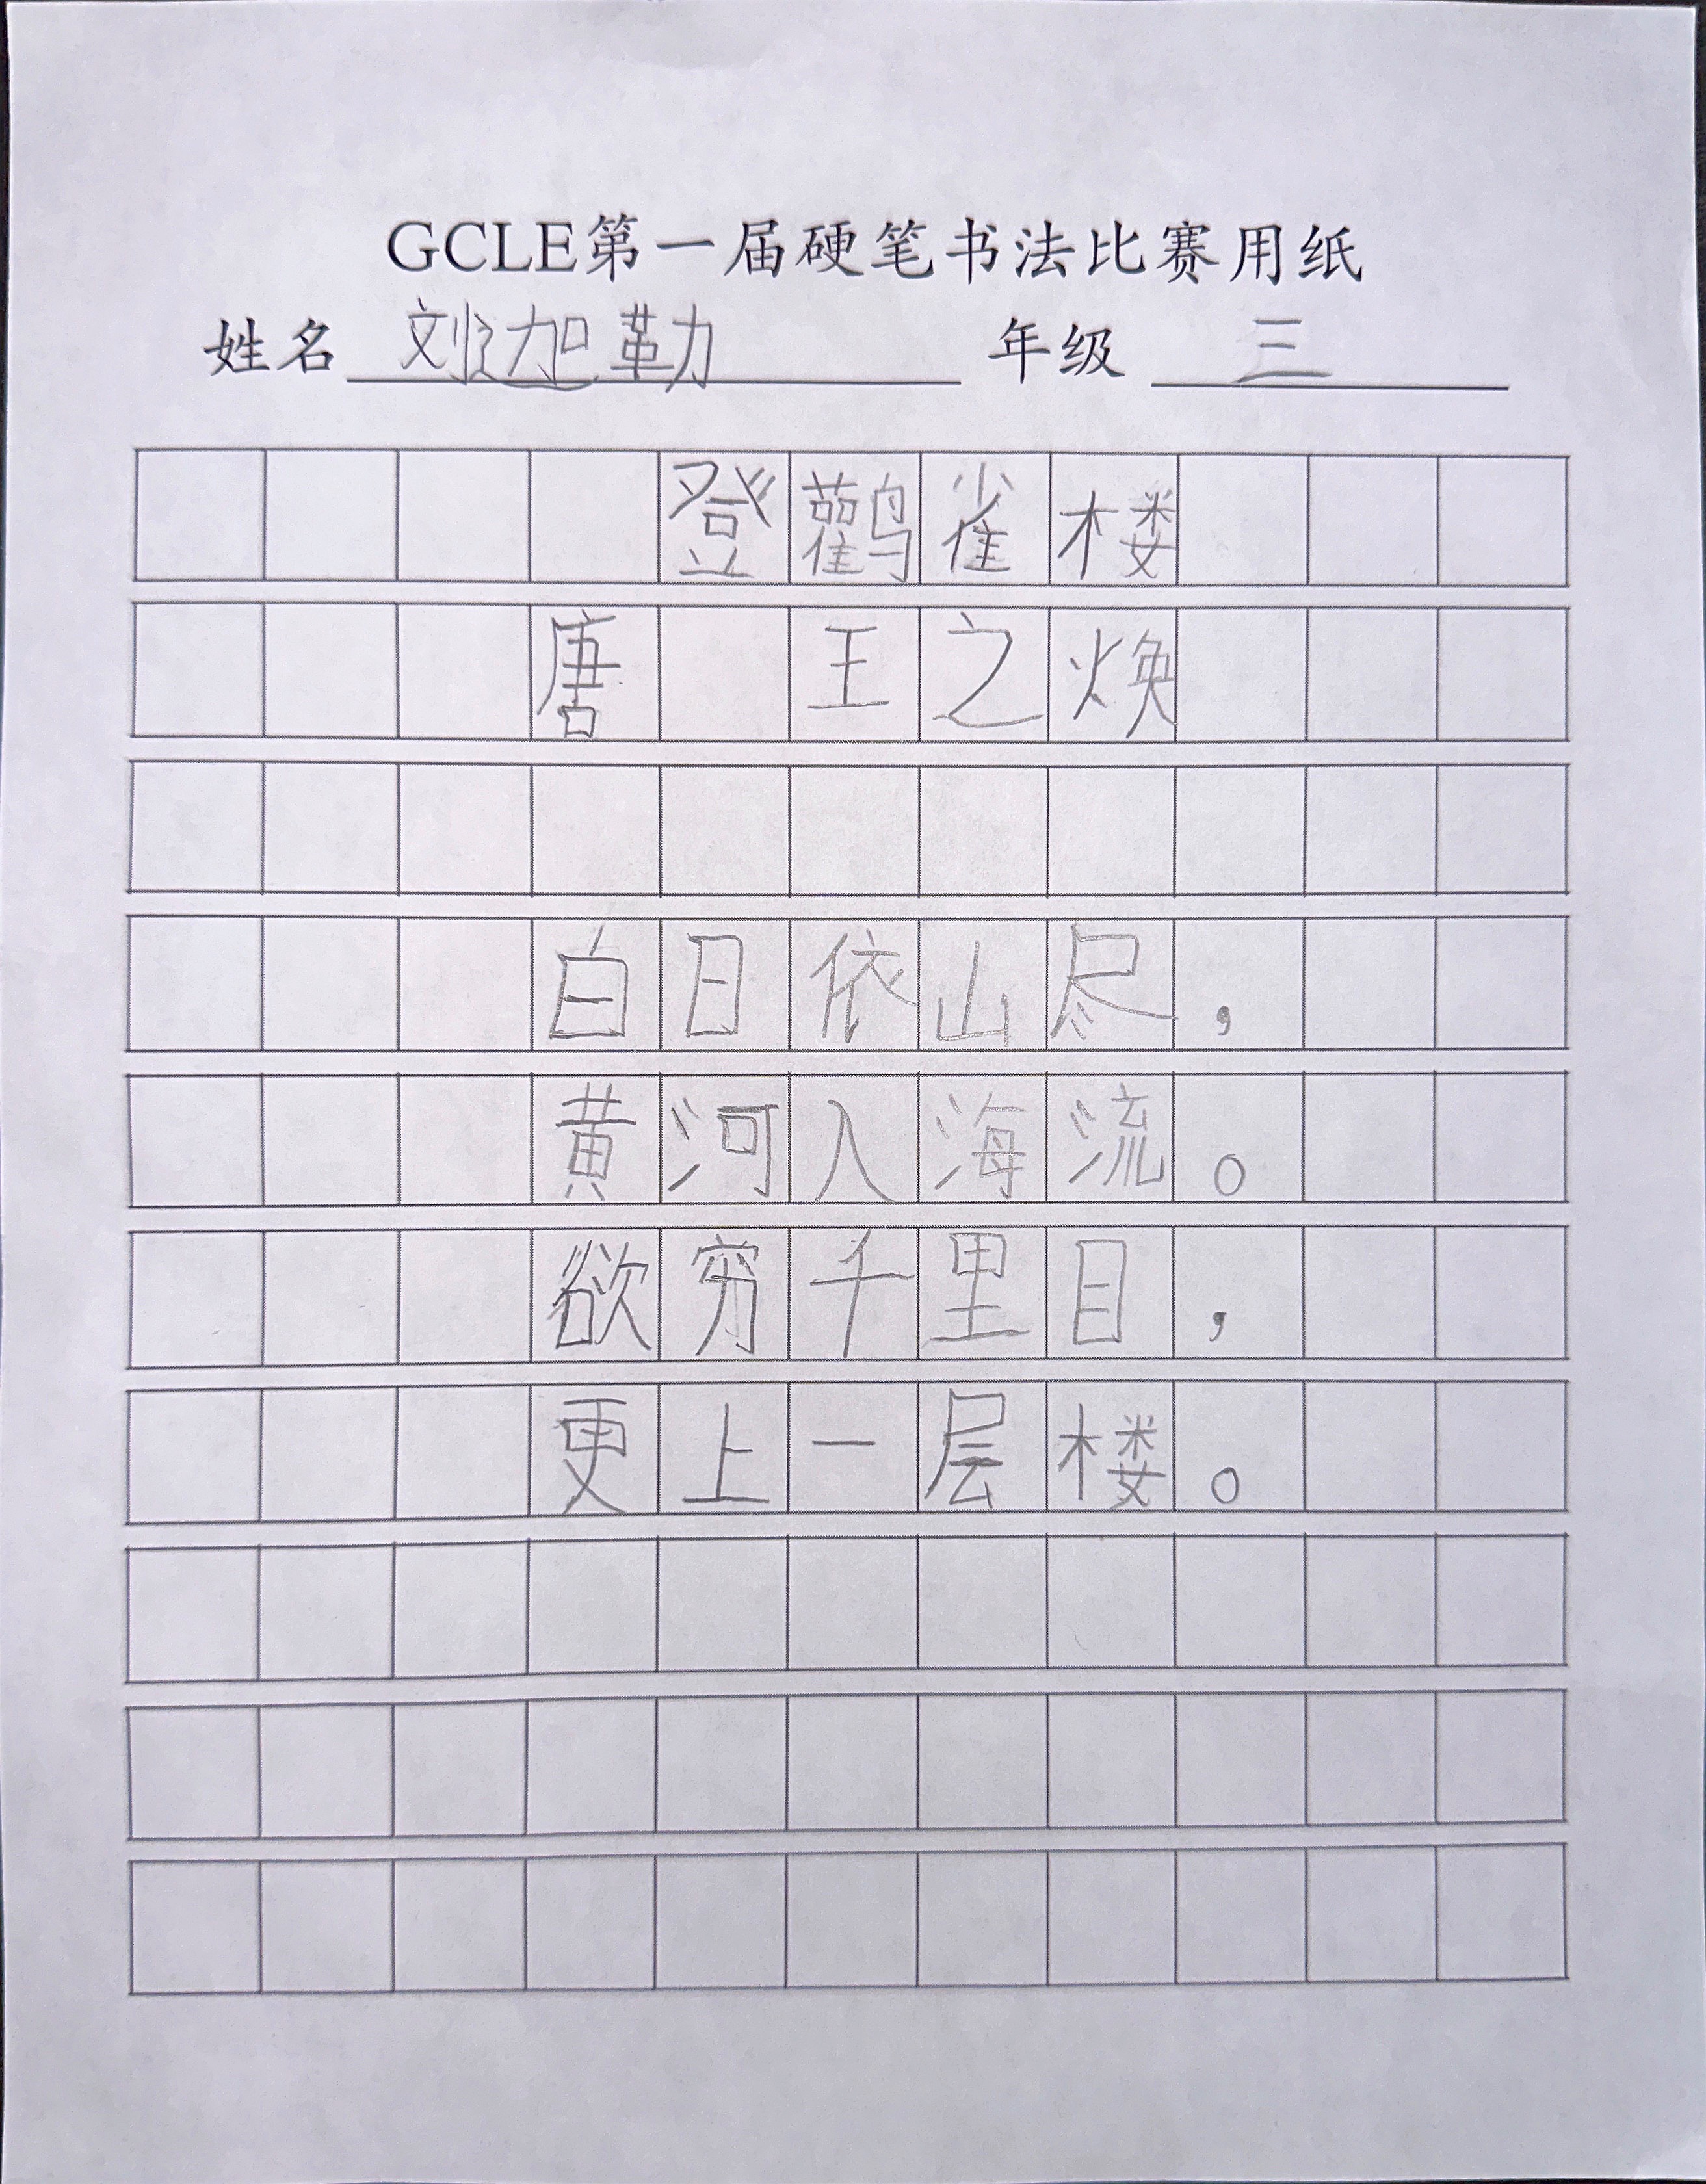 GCLE第一届硬笔书法比赛用纸
姓名 刘迦勒 年级 三
登鹳雀楼
唐 王之焕
白日依山尽，
黄河入海流。
欲穷千里目，
更上一层楼。